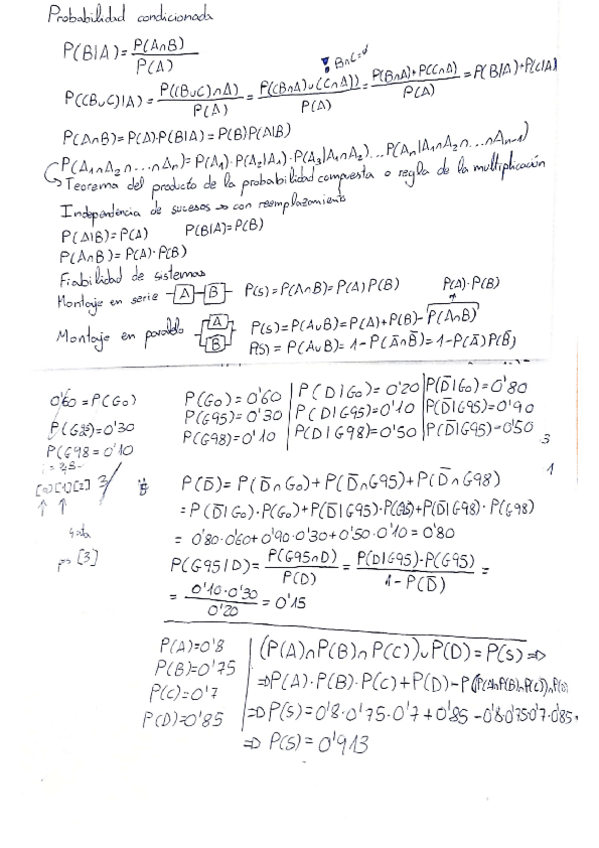 Probabilidad condicionada
P(B|A) = P(A∩B) / P(A)
! B∩C=∅
P((B∪C)|A) = P((B∪C)∩A) / P(A) = P((B∩A)∪(C∩A)) / P(A) = P(B∩A)+P(C∩A) / P(A) = P(B|A)+P(C|A)
P(A∩B)=P(A)·P(B|A)=P(B)P(A|B)
P(A₁∩A₂∩...∩Aₙ)=P(A₁)·P(A₂|A₁)·P(A₃|A₁∩A₂)...P(Aₙ|A₁∩A₂∩...∩Aₙ₋₁)
Teorema del producto de la probabilidad compuesta o regla de la multiplicación
Independencia de sucesos → con reemplazamiento
P(A|B)=P(A) P(B|A)=P(B)
P(A∩B)=P(A)·P(B)
Fiabilidad de sistemas
Montaje en serie A B P(S)=P(A∩B)=P(A)P(B) P(A)·P(B)
Montaje en paralelo A B P(S)=P(A∪B)=P(A)+P(B)-P(A∩B)
P(S)=P(A∪B)=1-P(A̅∩B̅)=1-P(A̅)P(B̅)
0'60=P(Go) P(Go)=0'60 | P(D|Go)=0'20 | P(D̅|Go)=0'80
P(G95)=0'30 P(G95)=0'30 | P(D|G95)=0'10 | P(D̅|G95)=0'90
P(G98=0'10 P(G98)=0'10 | P(D|G98)=0'50 | P(D̅|G98)=0'50
3
1
P(D̅)=P(D̅∩Go)+P(D̅∩G95)+P(D̅∩G98)
=P(D̅|Go)·P(Go)+P(D̅|G95)·P(G95)+P(D̅|G98)·P(G98)
=0'80·0'60+0'90·0'30+0'50·0'10=0'80
[3]
P(G95|D)= P(G95∩D) / P(D) = P(D|G95)·P(G95) / 1-P(D̅) =
= 0'10·0'30 / 0'20 = 0'15
P(A)=0'8 | (P(A)∩P(B)∩P(C))∪P(D)=P(S)⇒
P(B)=0'75 | ⇒P(A)·P(B)·P(C)+P(D)-P((P(A)∩P(B)∩P(C))∩P(D)
P(C)=0'7 | ⇒P(S)=0'8·0'75·0'7+0'85-0'8·0'75·0'7·0'85
P(D)=0'85 | ⇒P(S)=0'913